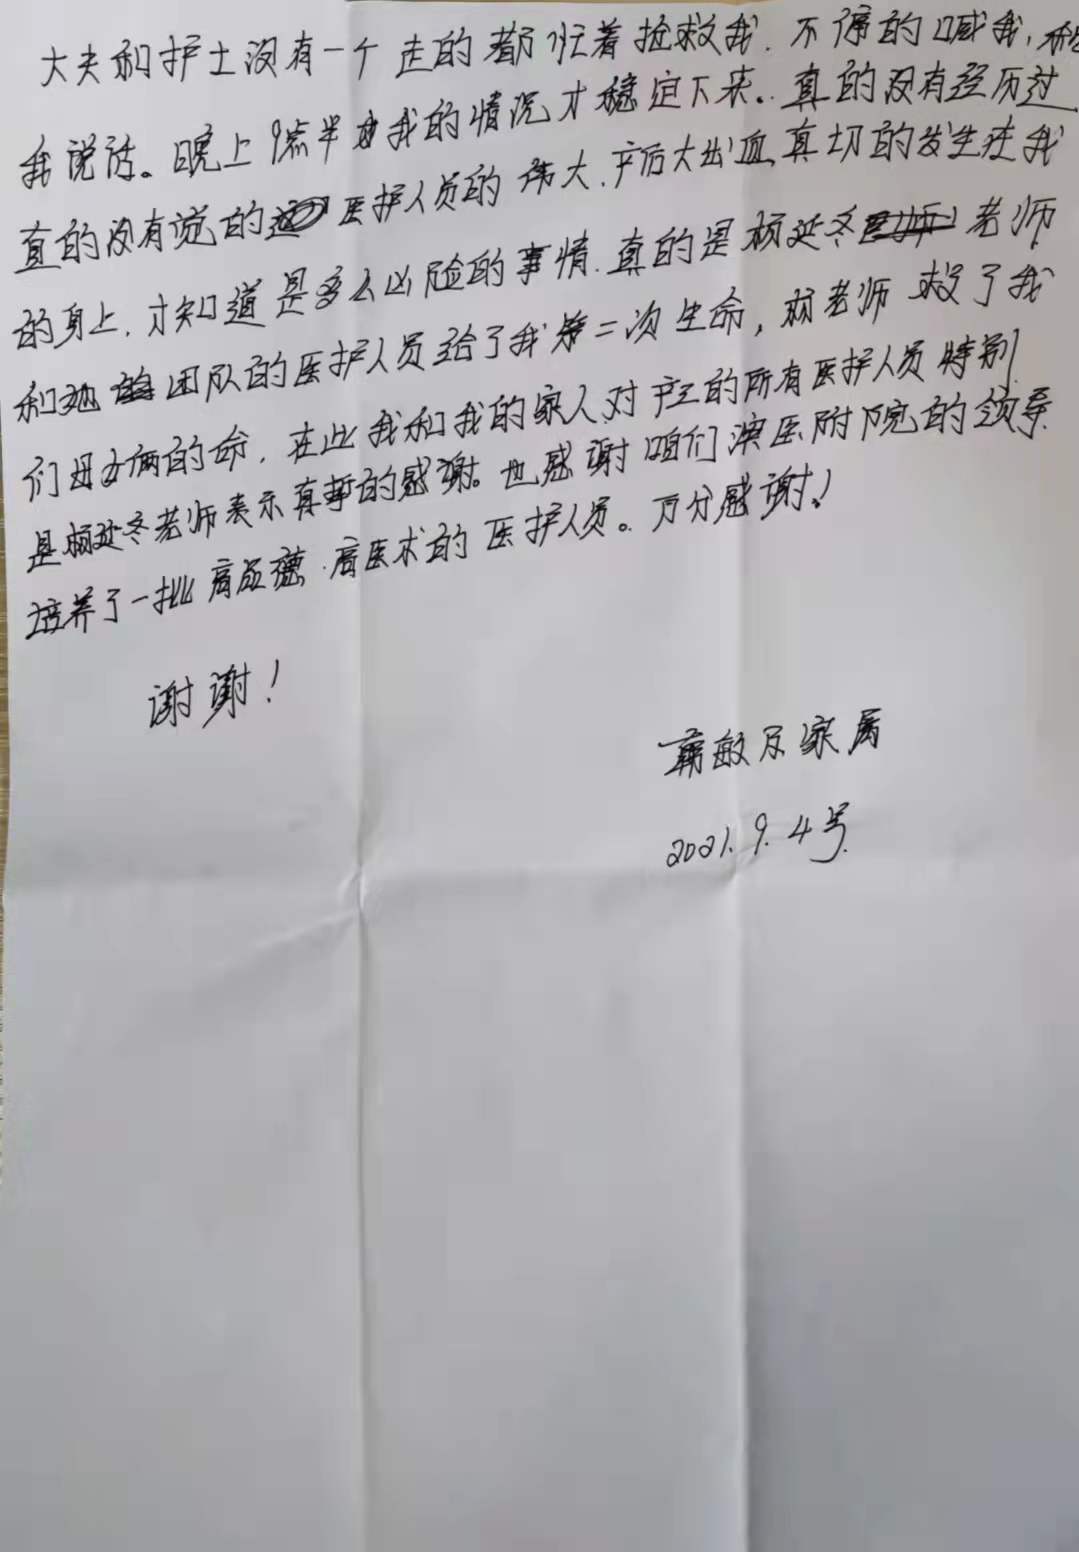 大夫和护士没有一个走的都忙着抢救我.不停的喊我,和
我说话。晚上9点半我的情况才稳定下来..真的没有经历过
真的没有觉的医护人员的伟大.产后大出血真切的发生在我
的身上.才知道是多么凶险的事情.真的是杨延冬老师
和她团队的医护人员给了我第二次生命,杨老师救了我
们母女俩的命.在此我和我的家人对产三的所有医护人员特别
是杨延冬老师表示真挚的感谢。也感谢咱们滨医附院的领导
培养了一批高品德.高医术的医护人员。万分感谢!
谢谢!
敏及家属
2021.9.4号.